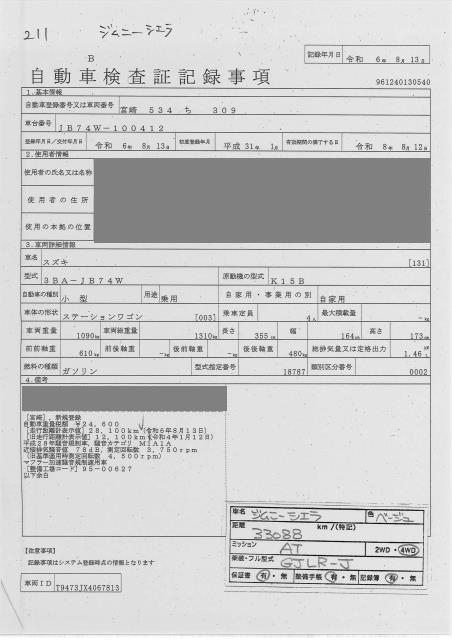 211 ジムニーシエラ
記録年月日 令和 6年 8月 13日
B
自動車検査証記録事項
961240130540
1. 基本情報
自動車登録番号又は車両番号 宮崎 534 ち 309
車台番号 JB74W-100412
登録年月日/交付年月日 令和 6年 8月 13日 初度登録年月 平成 31年 1月 有効期間の満了する日 令和 8年 8月 12日
2. 使用者情報
使用者の氏名又は名称
使用者の住所
使用の本拠の位置
3. 車両詳細情報
車名 スズキ [131]
型式 3BA-JB74W 原動機の型式 K15B
自動車の種別 小型 用途 乗用 自家用・事業用の別 自家用
車体の形状 ステーションワゴン [003] 乗車定員 4人 最大積載量 -kg
車両重量 1090kg 車両総重量 1310kg 長さ 355cm 幅 164cm 高さ 173cm
前前軸重 610kg 前後軸重 -kg 後前軸重 -kg 後後軸重 480kg 総排気量又は定格出力 1.46 L
燃料の種類 ガソリン 型式指定番号 18787 類別区分番号 0002
4. 備考
[宮崎], 新規登録
自動車重量税額 ¥24,600
[走行距離計表示値] 28,100km (令和6年8月13日)
[旧走行距離計表示値] 12,100km (令和4年1月12日)
平成28年騒音規制車, 騒音カテゴリ M1A1A
近接排気騒音値 78dB, 測定回転数 3,750rpm
(旧基準適用時測定回転数 4,500rpm)
マフラー加速騒音規制適用車
[整備工場コード] 95-00627
以下余白
車名 ジムニーシエラ 色 ベージュ
距離 33088 km/(特記)
ミッション AT 2WD・4WD
架装・フル型式 GJLR-J
保証書 有・無 整備手帳 有・無 記録簿 有・無
[注意事項]
記録事項はシステム登録時点の情報となります
車両ID T9473JX4067813